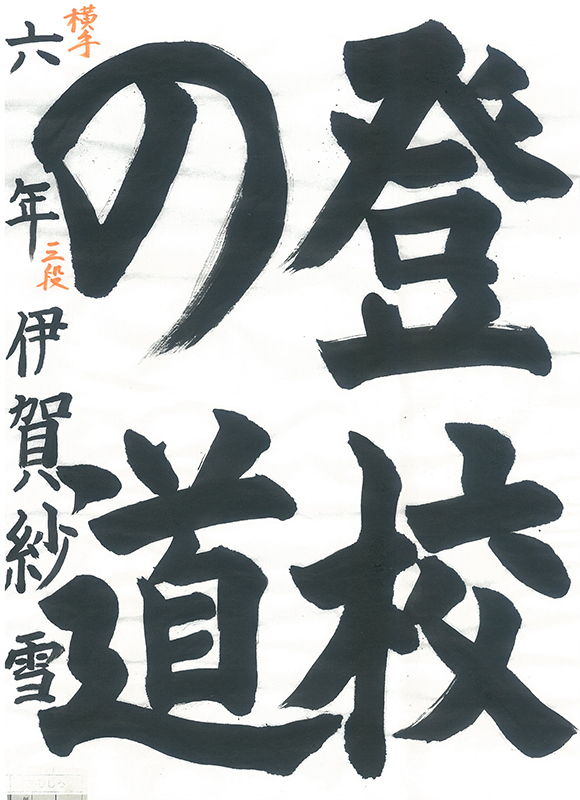 登校
の道
横手
六年三段伊賀紗雪